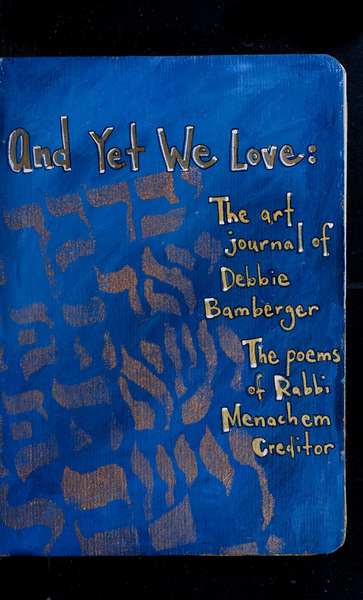 And Yet We Love:
The art
journal of
Debbie
Bamberger
The poems
of Rabbi
Menachem
Creditor